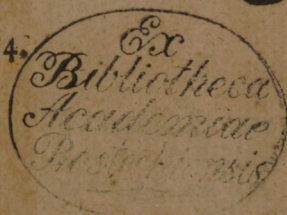 4.
Ex
Bibliotheca
Academiae
Rostochiensis